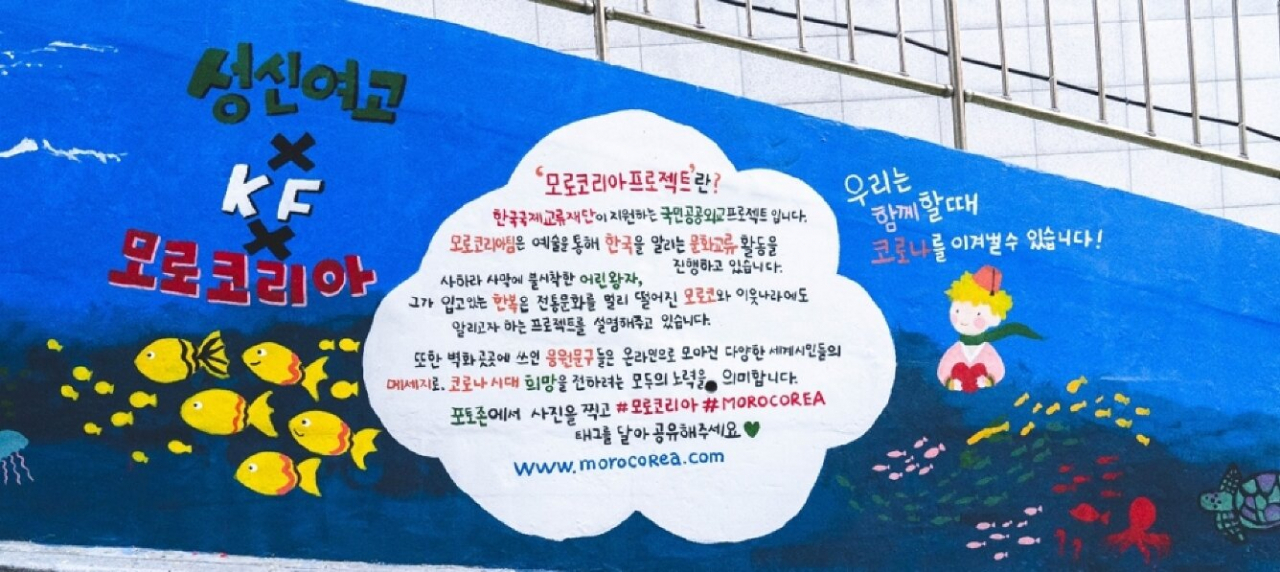 성신여고
×
KF
×
모로코리아
'모로코리아프로젝트'란?
한국국제교류재단이 지원하는 국민공공외교프로젝트 입니다.
모로코리아팀은 예술을 통해 한국을 알리는 문화교류 활동을
진행하고 있습니다.
사하라 사막에 불시착한 어린왕자,
그가 입고있는 한복은 전통문화를 멀리 떨어진 모로코와 이웃나라에도
알리고자 하는 프로젝트를 설명해주고 있습니다.
또한 벽화 곳곳에 쓰인 응원문구들은 온라인으로 모아진 다양한 세계시민들의
메세지로, 코로나시대 희망을 전하려는 모두의 노력을 의미합니다.
포토존에서 사진을 찍고 #모로코리아 #MOROCOREA
태그를 달아 공유해주세요
www.morocorea.com
우리는
함께 할 때
코로나를 이겨낼 수 있습니다!